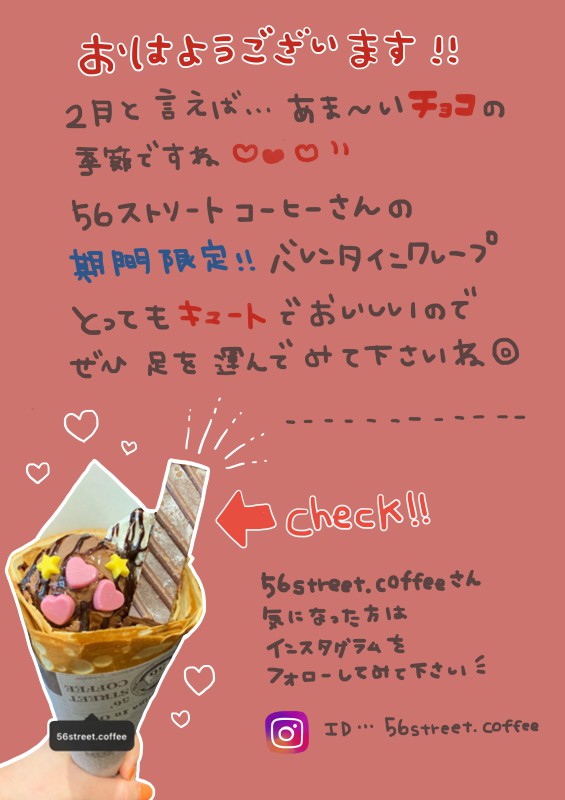 おはようございます!!
2月と言えば… あま〜いチョコの
季節ですね ♡♥♡
56ストリートコーヒーさんの
期間限定!! バレンタインクレープ
とってもキュートでおいしいので
ぜひ 足を運んでみて下さいね◎
Check!!
56street.coffeeさん
気になった方は
インスタグラムを
フォローしてみて下さい
ID… 56street.coffee
56 STREET COFFEE
56street.coffee